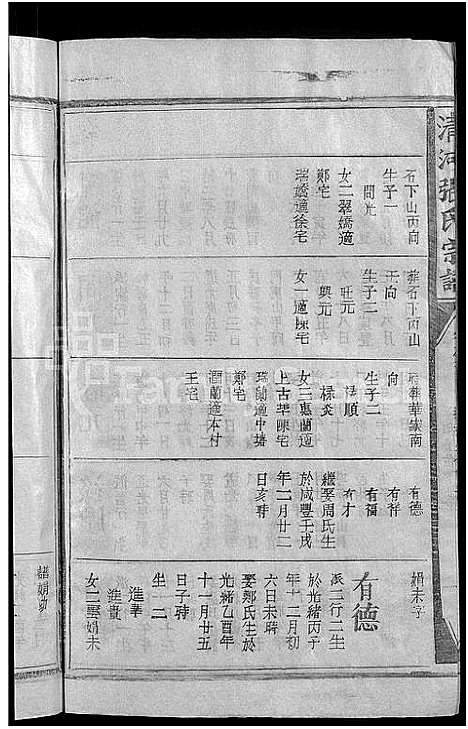 清河張氏宗譜
石下山丙向
生子一
問光
女二翠嬌適
鄭宅
瑞嬌適徐宅
葬石下丙山
壬向
生子二
旺元
興元
女一適陳宅
葬華家南
向
生子二
祿順
祿炎
女三惠蘭適
上古竿陳宅
瑞蘭適中塘
鄭宅
酒蘭適本村
王宅
有德
有祥
有福
有才
繼娶周氏生
於咸豐壬戌
年二月廿二
日亥時
娟未字
有德
派二行二生
於光緒丙子
年十二月初
六日未時
娶鄭氏生於
光緒乙酉年
十一月廿五
日子時
生二
進華
進貴
女一翠娟未